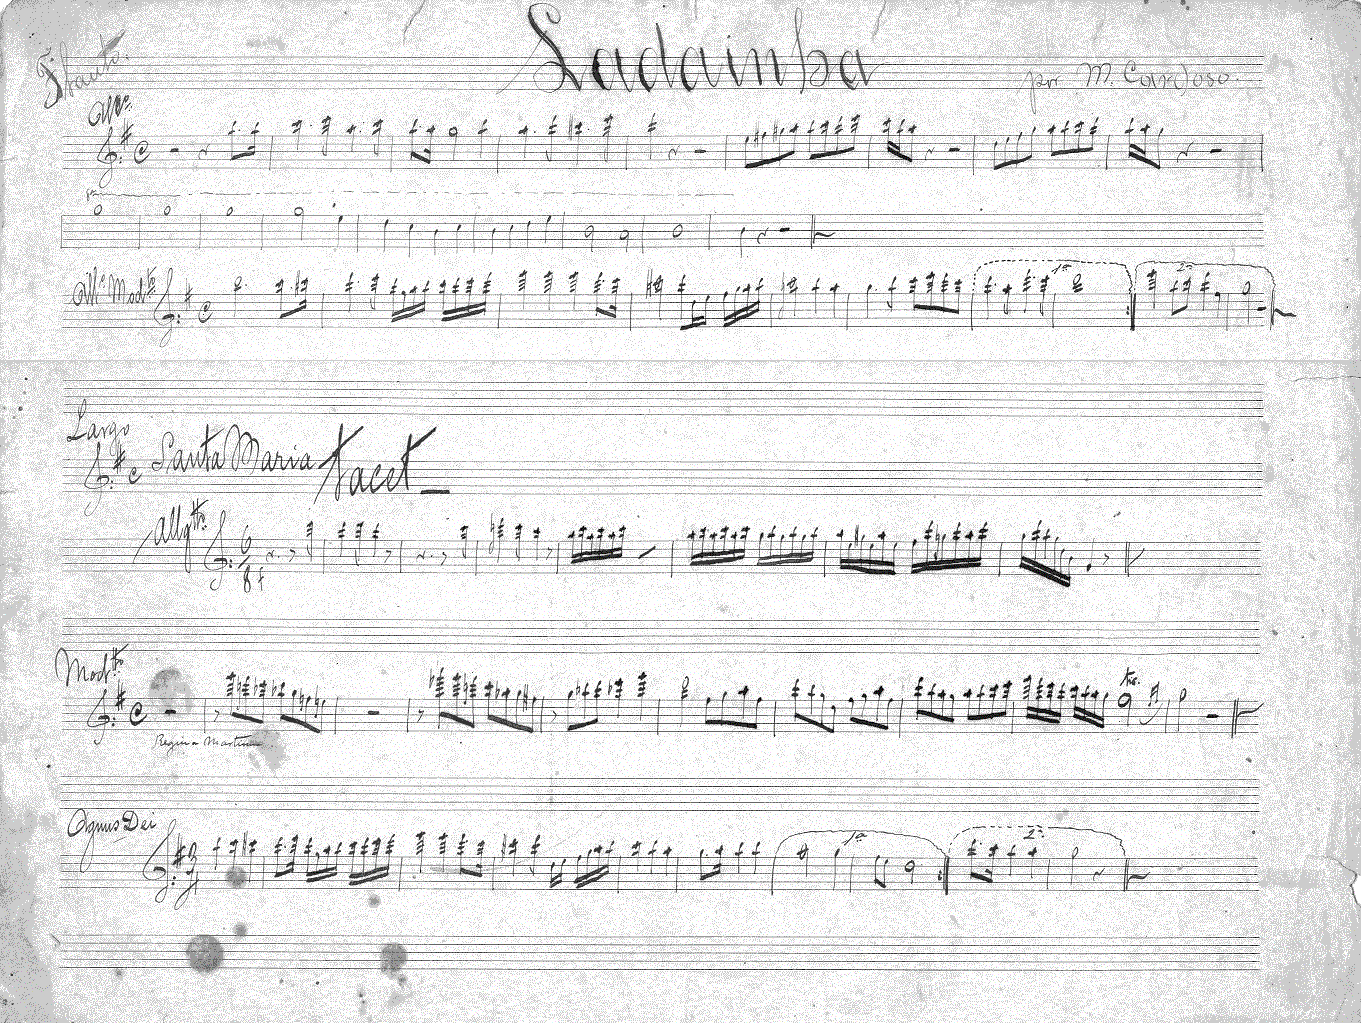 Flauto.
Ladainha
por M. Cardoso.
Allo.
8va
All.º Modto
1ª
2ª
Largo
Santa Maria tacet
Allgtto.
6
8
Modto
Regina Martirum
tr.
Agnus Dei
3
4
1ª
2ª